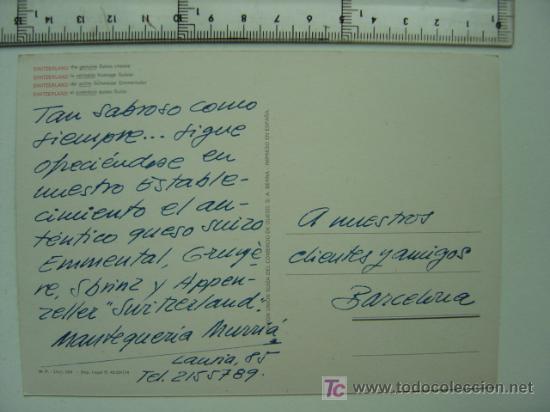 SWITZERLAND the genuine Swiss cheese
SWITZERLAND le véritable fromage Suisse
SWITZERLAND der echte Schweizer Emmentaler
SWITZERLAND el auténtico queso Suizo
Tan sabroso como
siempre... sigue
ofreciéndose en
nuestro Estable-
cimiento el au-
téntico queso suizo
Emmental, Gruyè-
re, Sbrinz y Appen-
zeller "Switzerland".
Mantequeria Murriá
Lauria, 85
Tel. 2155789.
A nuestros
clientes y amigos
Barcelona
UNIÓN SUIZA DEL COMERCIO DE QUESO, S. A. BERNA - IMPRESO EN ESPAÑA
todocoleccion
www.todocoleccion.net